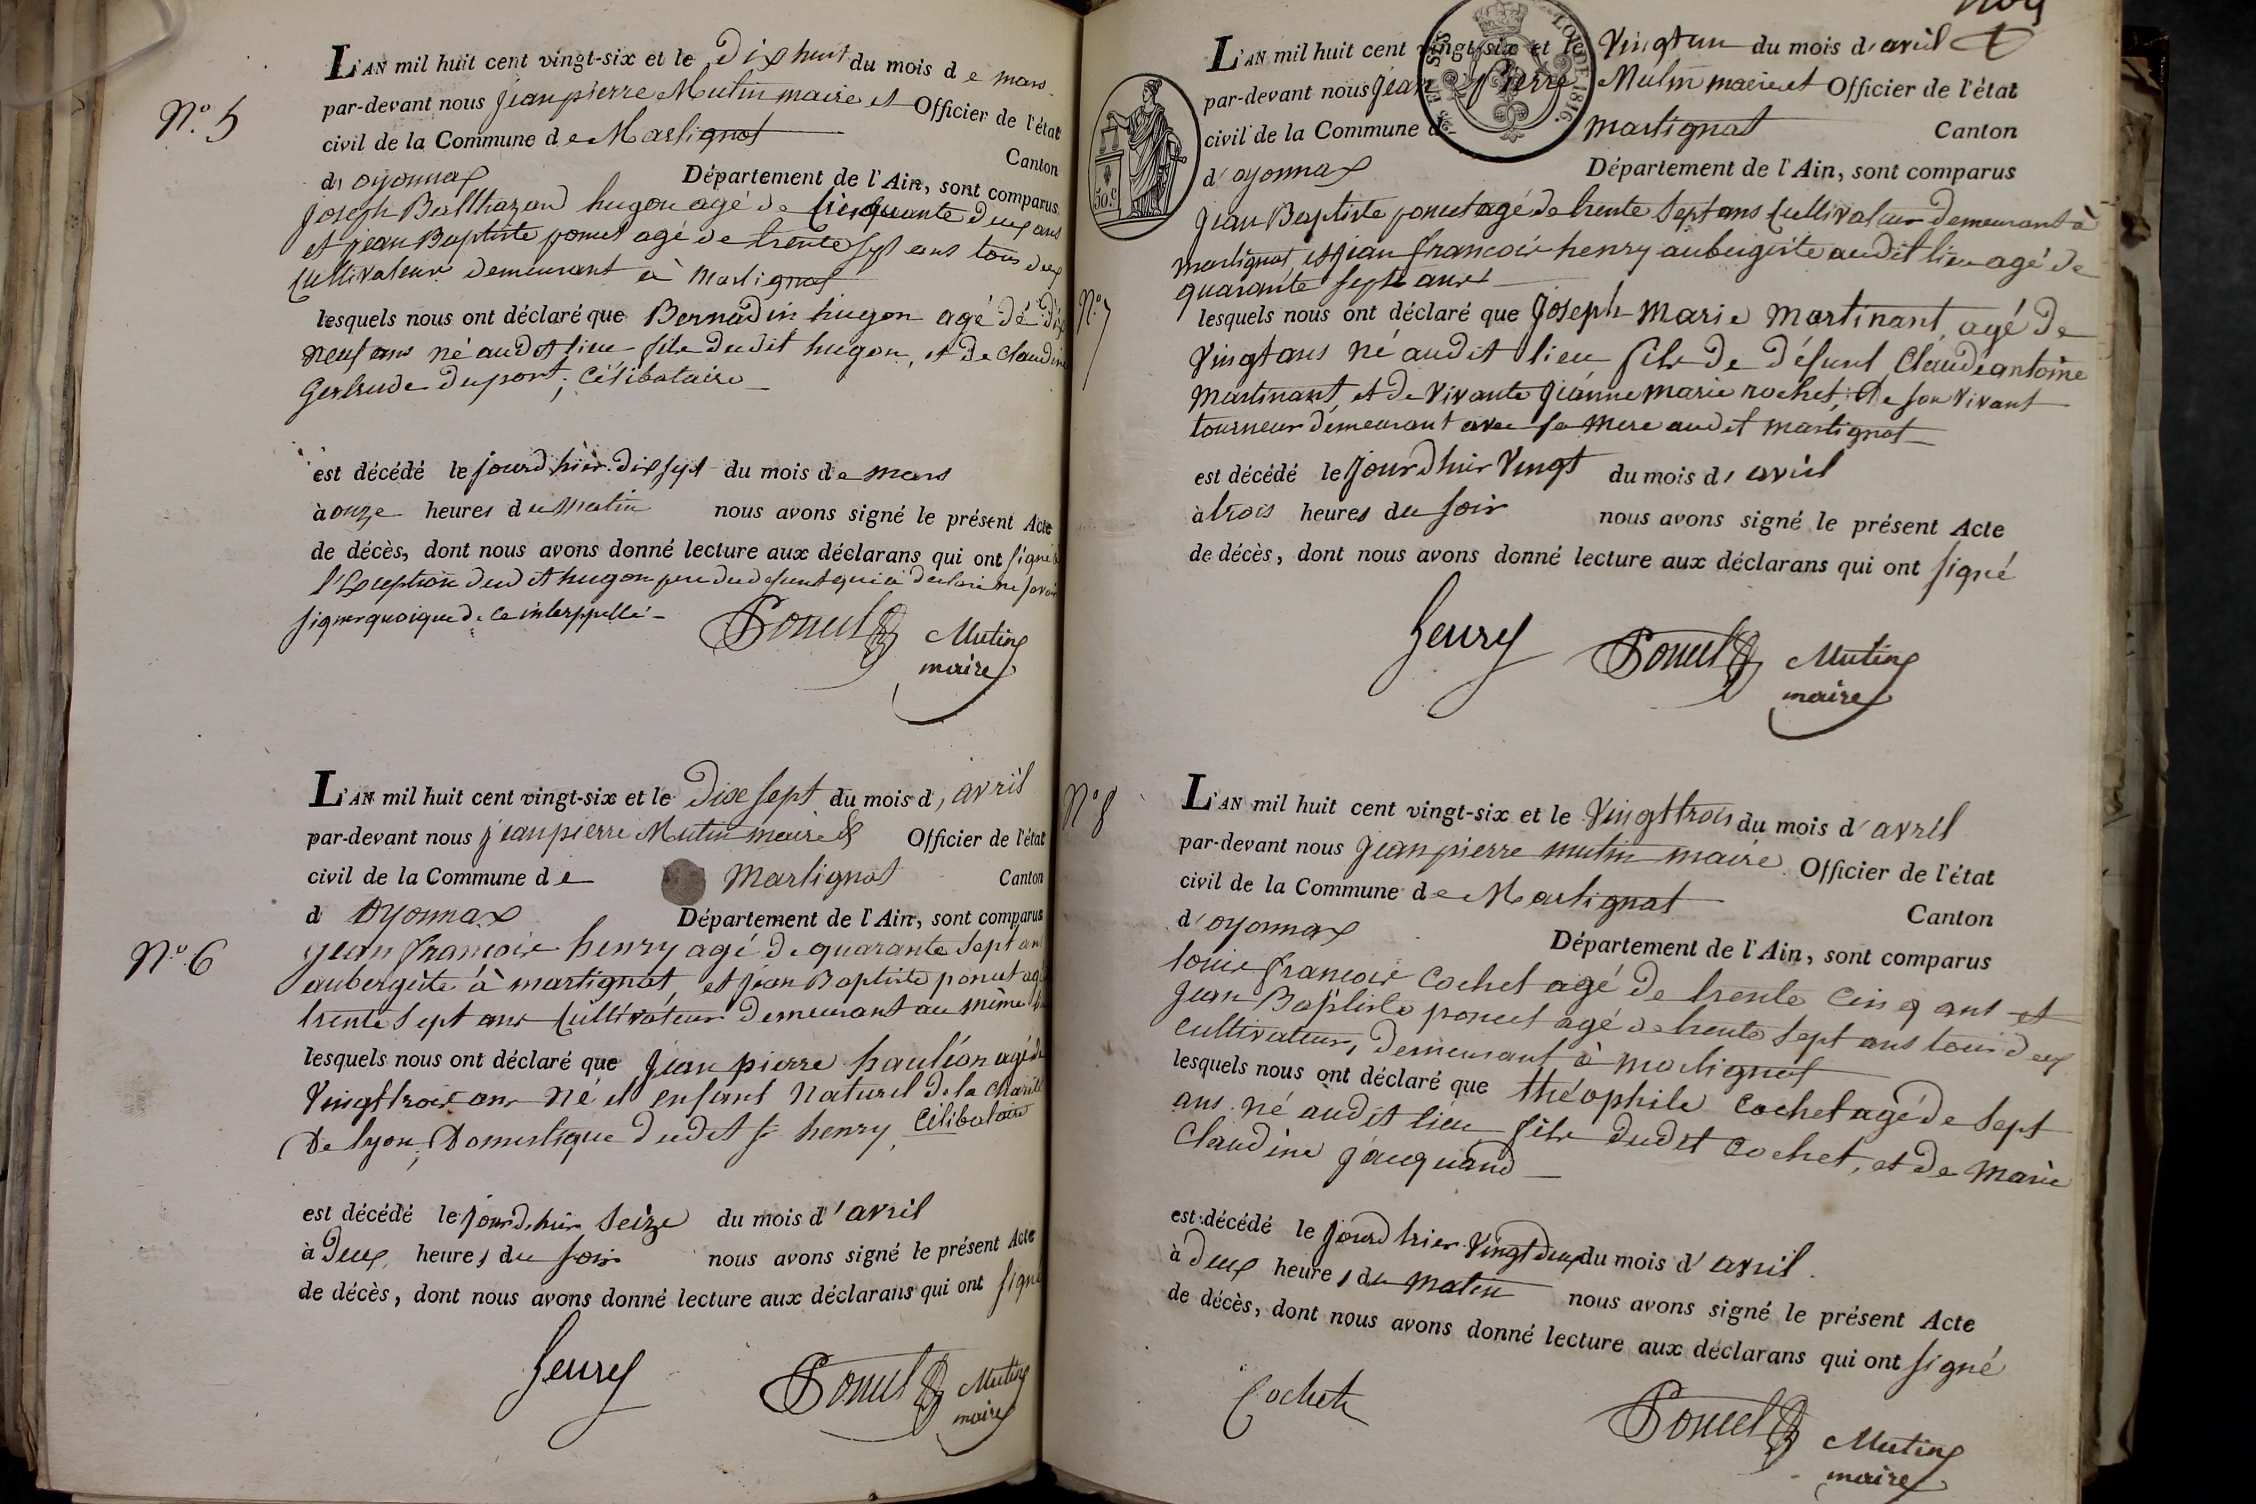 N.° 5
L'AN mil huit cent vingt-six et le Dix huit du mois de mars
par-devant nous jean pierre Mutin maire et Officier de l'état
civil de la Commune de Martignat Canton
d'oyonnax Département de l'Ain, sont comparus
joseph Balthazard hugon agé de Cinquante deux ans
et jean Baptiste poncet agé de trente sept ans tous deux
Cultivateur demeurant à Martignat
lesquels nous ont déclaré que Bernadin hugon agé de dix
neuf ans né audit lieu fils dudit hugon, et de Claudine
Gertrude dupont, Célibataire
est décédé le jourd'hier dix sept du mois de mars
à onze heures du Matin nous avons signé le présent Acte
de décès, dont nous avons donné lecture aux déclarans qui ont signé à
l'Exception dudit hugon pere du defunt qui a déclaré ne savoir
signer quoique de ce interppellé
Poncet Mutin
maire
L'AN mil huit cent vingt-six et le Dix sept du mois d'avril
par-devant nous jean pierre Mutin maire & Officier de l'état
civil de la Commune de Martignat Canton
d'Oyonnax Département de l'Ain, sont comparus
N.° 6
jean francois henry agé de quarante sept ans
aubergiste à martignat, et jean Baptiste poncet agé
trente sept ans Cultivateur demeurant au même
lesquels nous ont déclaré que jean pierre pauléon agé de
Vingt trois ans né et enfant Naturel de la Charité
De lyon; Domestique dudit sr henry, Célibataire
est décédé le jourd'hier Seize du mois d'avril
à Deux heures du soir nous avons signé le présent Acte
de décès, dont nous avons donné lecture aux déclarans qui ont signé
henry Poncet Mutin
maire
L'AN mil huit cent vingt-six et le Vingt un du mois d'avril
par-devant nous jean Pierre Mutin maire et Officier de l'état
civil de la Commune de martignat Canton
d'oyonnax Département de l'Ain, sont comparus
LOI DE 1816.
50.c
jean Baptiste poncet agé de trente Sept ans Cultivateur demeurant à
martignat et jean francois henry aubergiste audit lieu agé de
quarante sept ans
N.° 7
lesquels nous ont déclaré que joseph Marie Martinant agé de
Vingt ans né audit lieu fils de défunt Claude antoine
Martinant, et de Vivante jeanne marie rochet, De son Vivant
tourneur demeurant avec sa mere audit martignat
est décédé le jourd'hier Vingt du mois d'avril
à trois heures du soir nous avons signé le présent Acte
de décès, dont nous avons donné lecture aux déclarans qui ont signé
henry Poncet Mutin
maire
N.° 8
L'AN mil huit cent vingt-six et le Vingt trois du mois d'avril
par-devant nous jean pierre mutin maire Officier de l'état
civil de la Commune de Martignat Canton
d'oyonnax Département de l'Ain, sont comparus
louis francois Cochet agé de trente Cinq ans et
jean Baptiste poncet agé de trente sept ans tous deux
cultivateur, demeurant à martignat
lesquels nous ont déclaré que théophile Cochet agé de Sept
ans né audit lieu fils dudit Cochet, et de Marie
Claudine jacquand
est décédé le jourd'hier Vingt deux du mois d'avril
à Deux heures du Matin nous avons signé le présent Acte
de décès, dont nous avons donné lecture aux déclarans qui ont signé
Cochet Poncet Mutin
maire